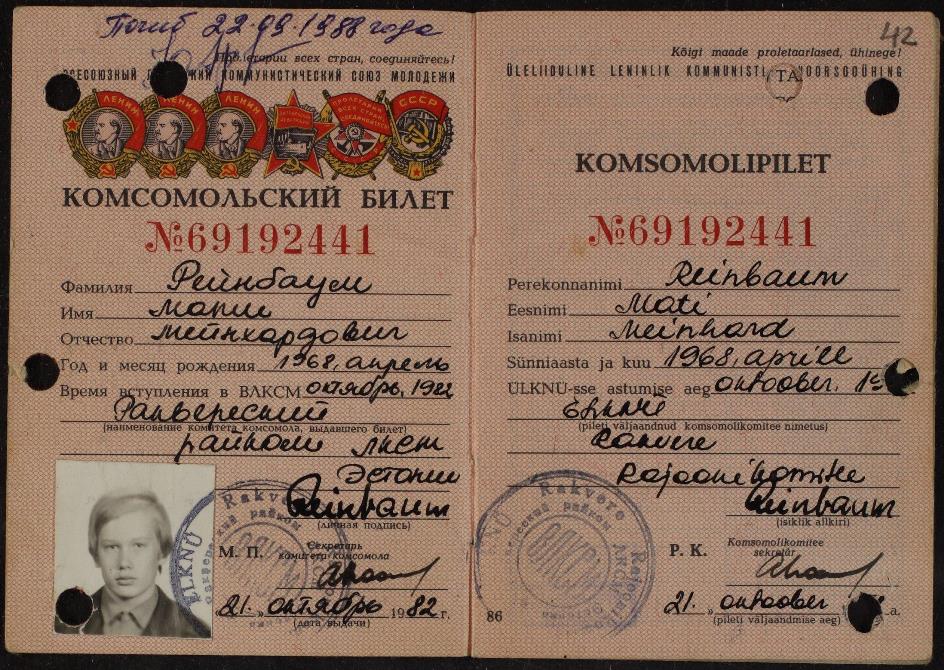 Погиб 22.09.1988 года
Пролетарии всех стран, соединяйтесь!
ВСЕСОЮЗНЫЙ КОММУНИСТИЧЕСКИЙ СОЮЗ МОЛОДЕЖИ
ЛЕНИН ЛЕНИН ЛЕНИН СССР
КОМСОМОЛЬСКИЙ БИЛЕТ
№69192441
Фамилия Рейнбаум
Имя Мати
Отчество Мейнхардович
Год и месяц рождения 1968, апрель
Время вступления в ВЛКСМ октябрь, 1982
Раквереский
(наименование комитета комсомола, выдавшего билет)
райком ЛКСМ
Эстонии
Reinbaum
(личная подпись)
М. П.
Секретарь
комитета комсомола
„21.„ октябрь 1982 г.
(дата выдачи)
42
Kõigi maade proletaarlased, ühinege!
ÜLELIIDULINE LENINLIK KOMMUNISTLIK NOORSOOÜHING
TA
KOMSOMOLIPILET
№69192441
Perekonnanimi Reinbaum
Eesnimi Mati
Isanimi Meinhard
Sünniaasta ja kuu 1968, aprill
ÜLKNÜ-sse astumise aeg oktoober. 19
ELKNÜ
(pileti väljaandnud komsomolikomitee nimetus)
Rakvere
Rajoonikomitee
Reinbaum
(isiklik allkiri)
P. K.
Komsomolikomitee
sekretär
21. „ oktoober a.
(pileti väljaandmise aeg)
86